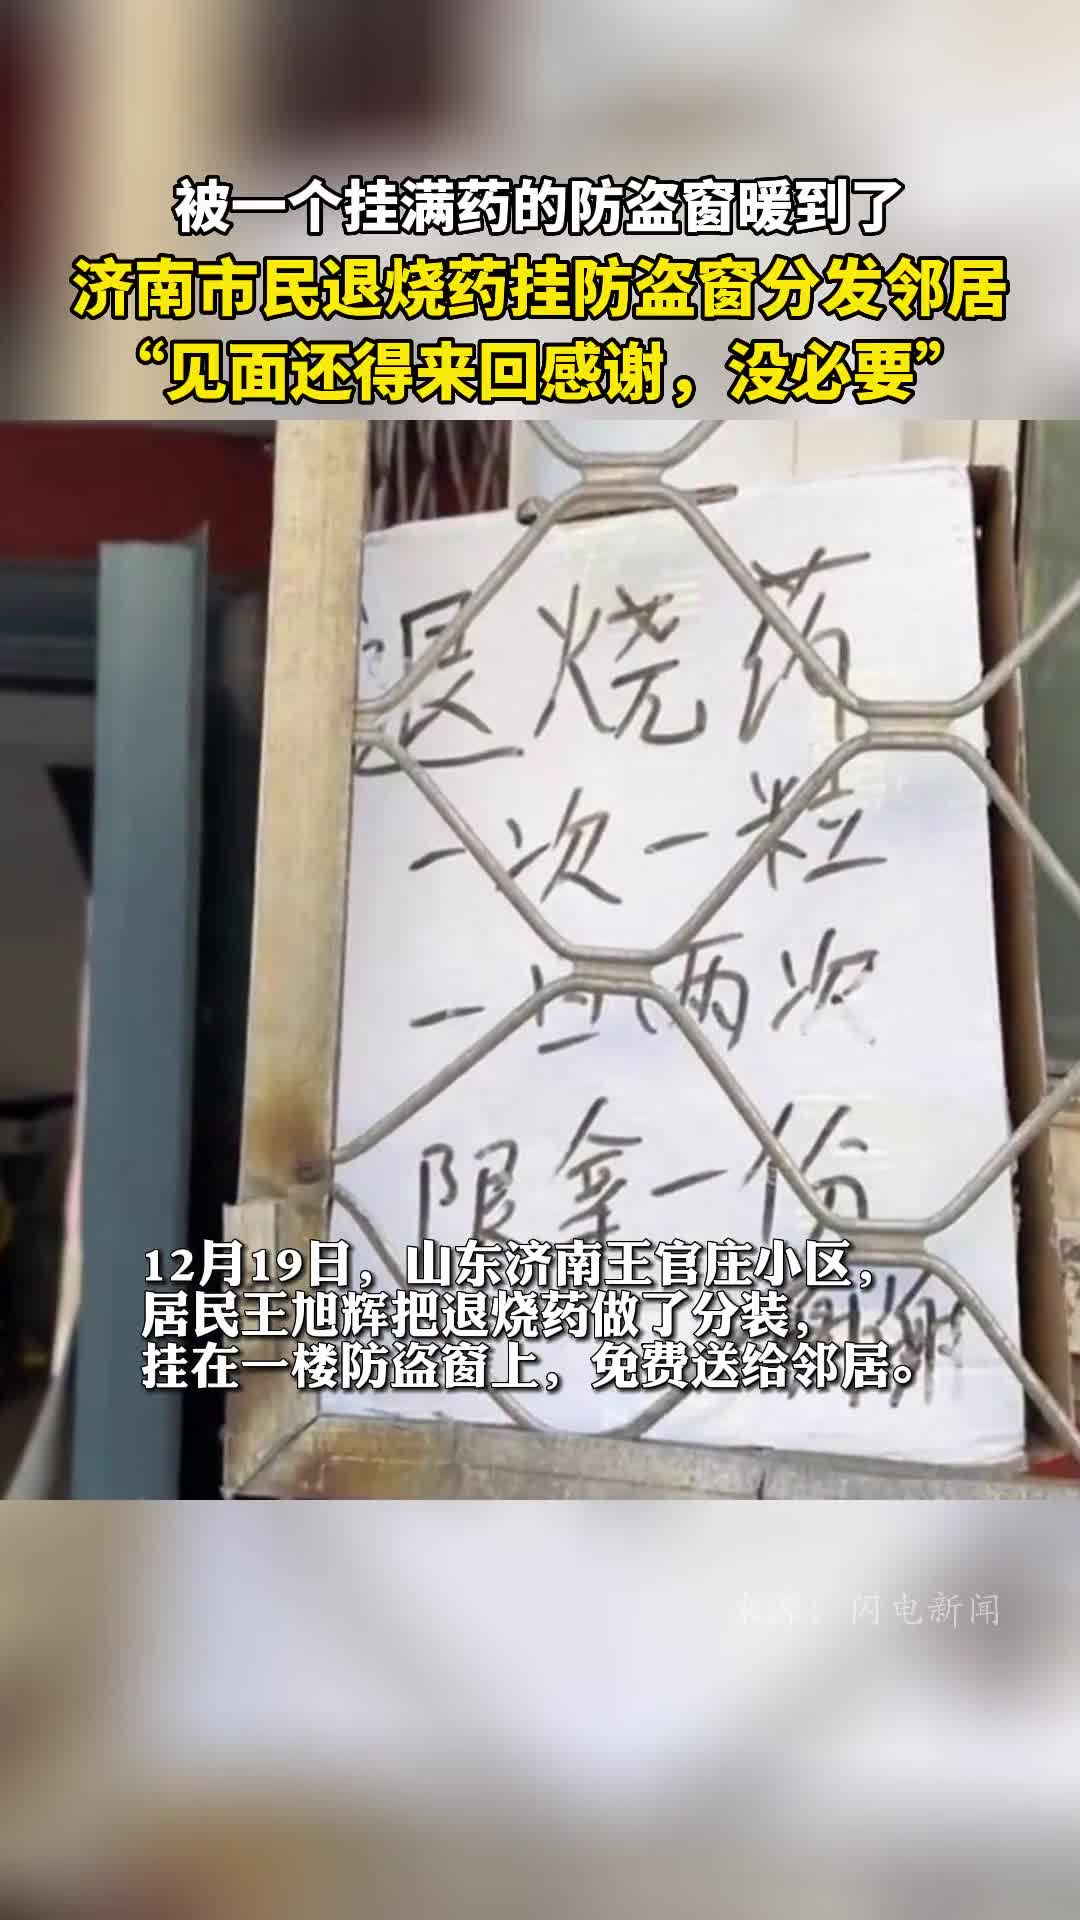 被一个挂满药的防盗窗暖到了
济南市民退烧药挂防盗窗分发邻居
“见面还得来回感谢，没必要”
退烧药
一次一粒
一日两次
限拿一份
12月19日，山东济南王官庄小区，
居民王旭辉把退烧药做了分装，
挂在一楼防盗窗上，免费送给邻居。
闪电新闻